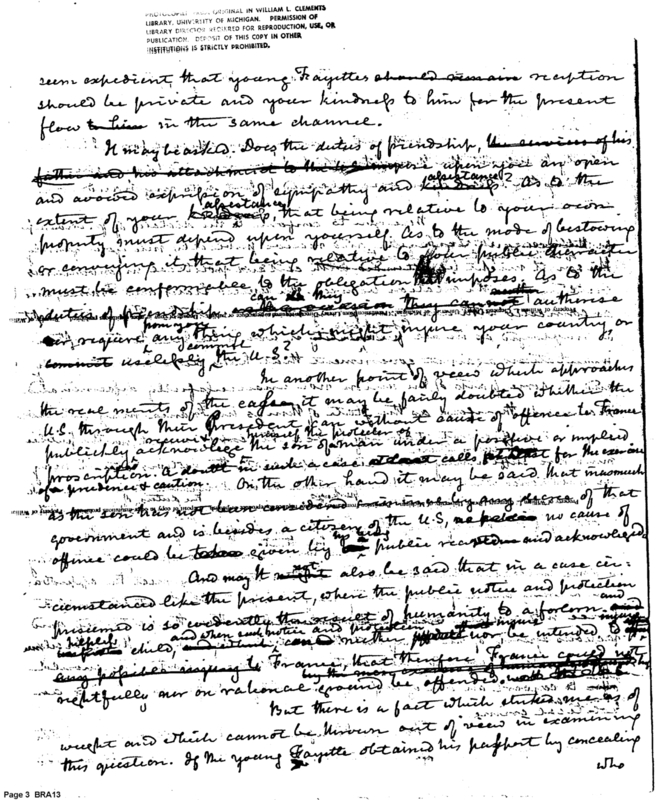 ORIGINAL IN WILLIAM L. CLEMENTS
LIBRARY, UNIVERSITY OF MICHIGAN. PERMISSION OF
LIBRARY DIRECTOR REQUIRED FOR REPRODUCTION, USE, OR
PUBLICATION. DEPOSIT OF THIS COPY IN OTHER
INSTITUTIONS IS STRICTLY PROHIBITED.
seem expedient that young Fayettes should remain reception
should be private and your kindness to him for the present
flow to him in the same channel.
It may be asked. Does the duties of friendship, the services of his
father and his attachment to the U.S. impose upon you an open
and avowed expression of sympathy and assistance? As to the
extent of your assistance, that being relative to your own
property must depend upon yourself. As to the mode of bestowing
or conveying it that being relative to your public character
must be conformable to the obligation that imposes. As to the
duties of friendship can they authorise
or require any thing which might injure your country, or
uselessly commit the U.S.?
In another point of view which approaches
the real merits of the case, it may be fairly doubted whether the
U.S. through their President can without cause of offence to France
publickly acknowledge the son of a man under a positive or implied
proscription. A doubt in such a case calls for the exercise
of prudence & caution. On the other hand it may be said that inasmuch
as the son has not been considered of that
government and is besides a citizen of the U.S, no cause of
offence could be given by his being public received and acknowledged.
And may it not also be said that in a case cir-
cumstanced like the present, where the public notice and protection
presumed is so evidently the result of humanity to a forlorn and
helpless child, and when such notice and protection neither injure nor be intended
France, that therefore France could not
rightfully nor on rational ground be offended
But there is a fact which strikes me as of
weight and which cannot be thrown out of view in examining
this question. If the young Fayette obtained his passport by concealing
who
Page 3 BRA13